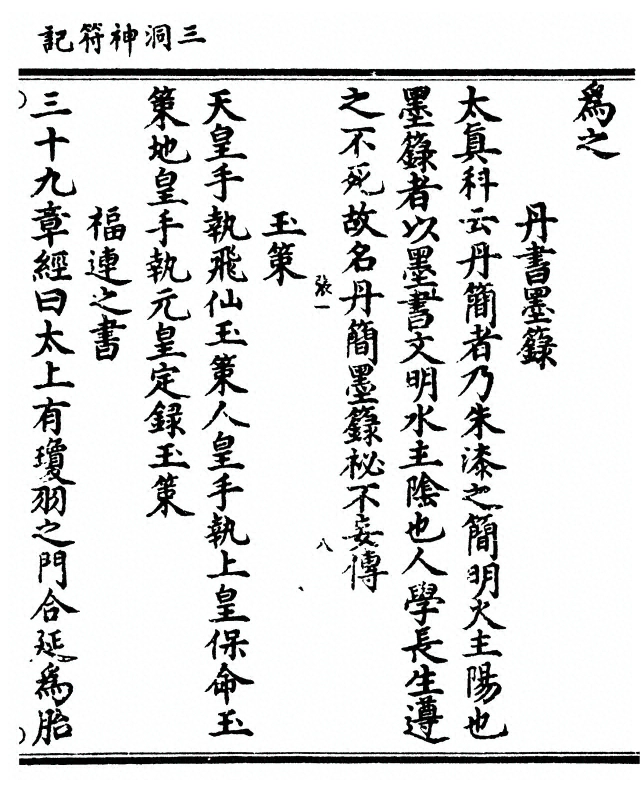 三洞神符記
為之
丹書墨籙
太眞科云丹簡者乃朱漆之簡明火主陽也
墨籙者以墨書文明水主陰也人學長生遵
之不死故名丹簡墨籙祕不妄傳
張一
八
玉策
天皇手執飛仙玉策人皇手執上皇保命玉
策地皇手執元皇定録玉策
福連之書
三十九章經曰太上有瓊羽之門合延為胎